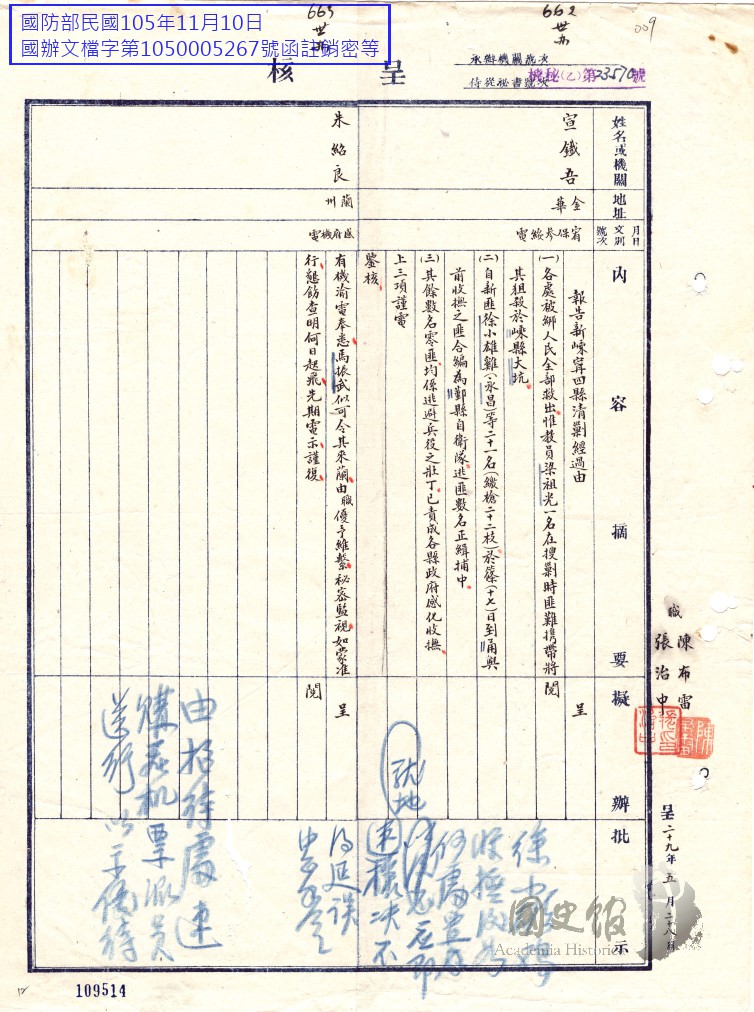 國防部民國105年11月10日
國辦文檔字第1050005267號函註銷密等
663
世
662
世
009
呈核
承辦機關號次
侍從祕書號次
機秘(乙)第23570號
姓名或機關
地址
月日
文別
號次
內容摘要
擬辦
批示
宣鐵吾
金華
電
報告新嵊甯四縣清剿經過由
(一)各處被綁人民全部救出惟教員梁祖光一名在搜剿時匪難携帶將
其狙殺於嵊縣大坑
(二)自新匪徐小雄雞(永昌)等二十一名(繳槍二十二枝)於篠(十七)日到甬與
前收撫之匪合編為鄞縣自衛隊逃匪數名正緝捕中
(三)其餘數名零匪均係逃避兵役之壯丁已責成各縣政府感化收撫
上三項謹電
鑒核
呈
閱
朱紹良
蘭州
電
有機渝電奉悉馬振武似可令其來蘭由職優予維繫祕密監視如蒙准
行懇飭查明何日起飛先期電示謹復
呈
閱
職
陳布雷
張治中
呈
二十九年五月二八日
就地
由招待處速
購飛机票派員
送行以示優待
國史館
Academia Historica
109514